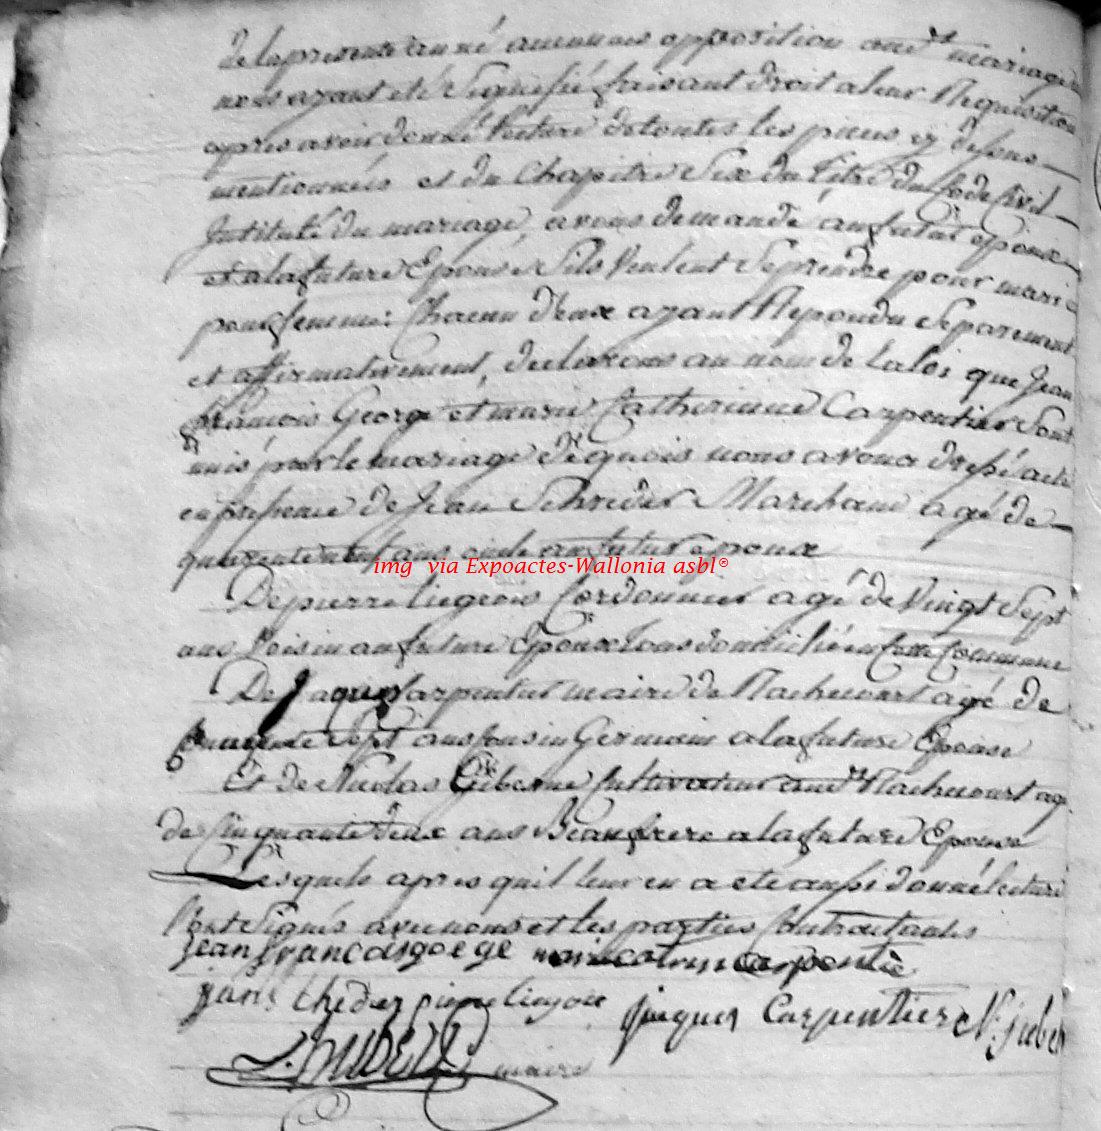 de la presente année aucunnes opposition aud.t mariage
nous ayant eté Signifié faisant droit a leur Requisition
apres avoir donné Lecture de toutes les pieces cy dessus
mentionneés et du Chapitre Six du titre du Code Civil
Intitulé du mariage, avons demandé au futur epoux
et a la future Epouse Sils Veulent Se prendre pour mari
pour femme: Chacun d'eux ayant Repondu Separement
et affirmativement, declarons au nom de la loi que Jean
francois George et marie Catherinne Carpentier Sont
unis par le mariage de quois nous avons dressé acte
en presence de Jean Schreder Marcham agé de
ans au futur epoux
img via Expoactes-Wallonia asbl®
De pierre liegeois Cordonnier agé de Vingt Sept
ans Voisin au future Epoux tous domicilié en Cette Commune
De Jaques Carpentier maire de Rachecourt agé de
Sept ans Cousin Germain a la future Epouse
Et de Nicolas Cultivateur aud.t Rachecourt agé
de Cinquante deux ans Beau frere a la future Epouse
Lesquels apres quil leur en a ete aussi donné lecture
l'ont Signés avec nous et les parties Contractantes
jean francois goege carpentie
pierre Jacques Carpentier N:
maire